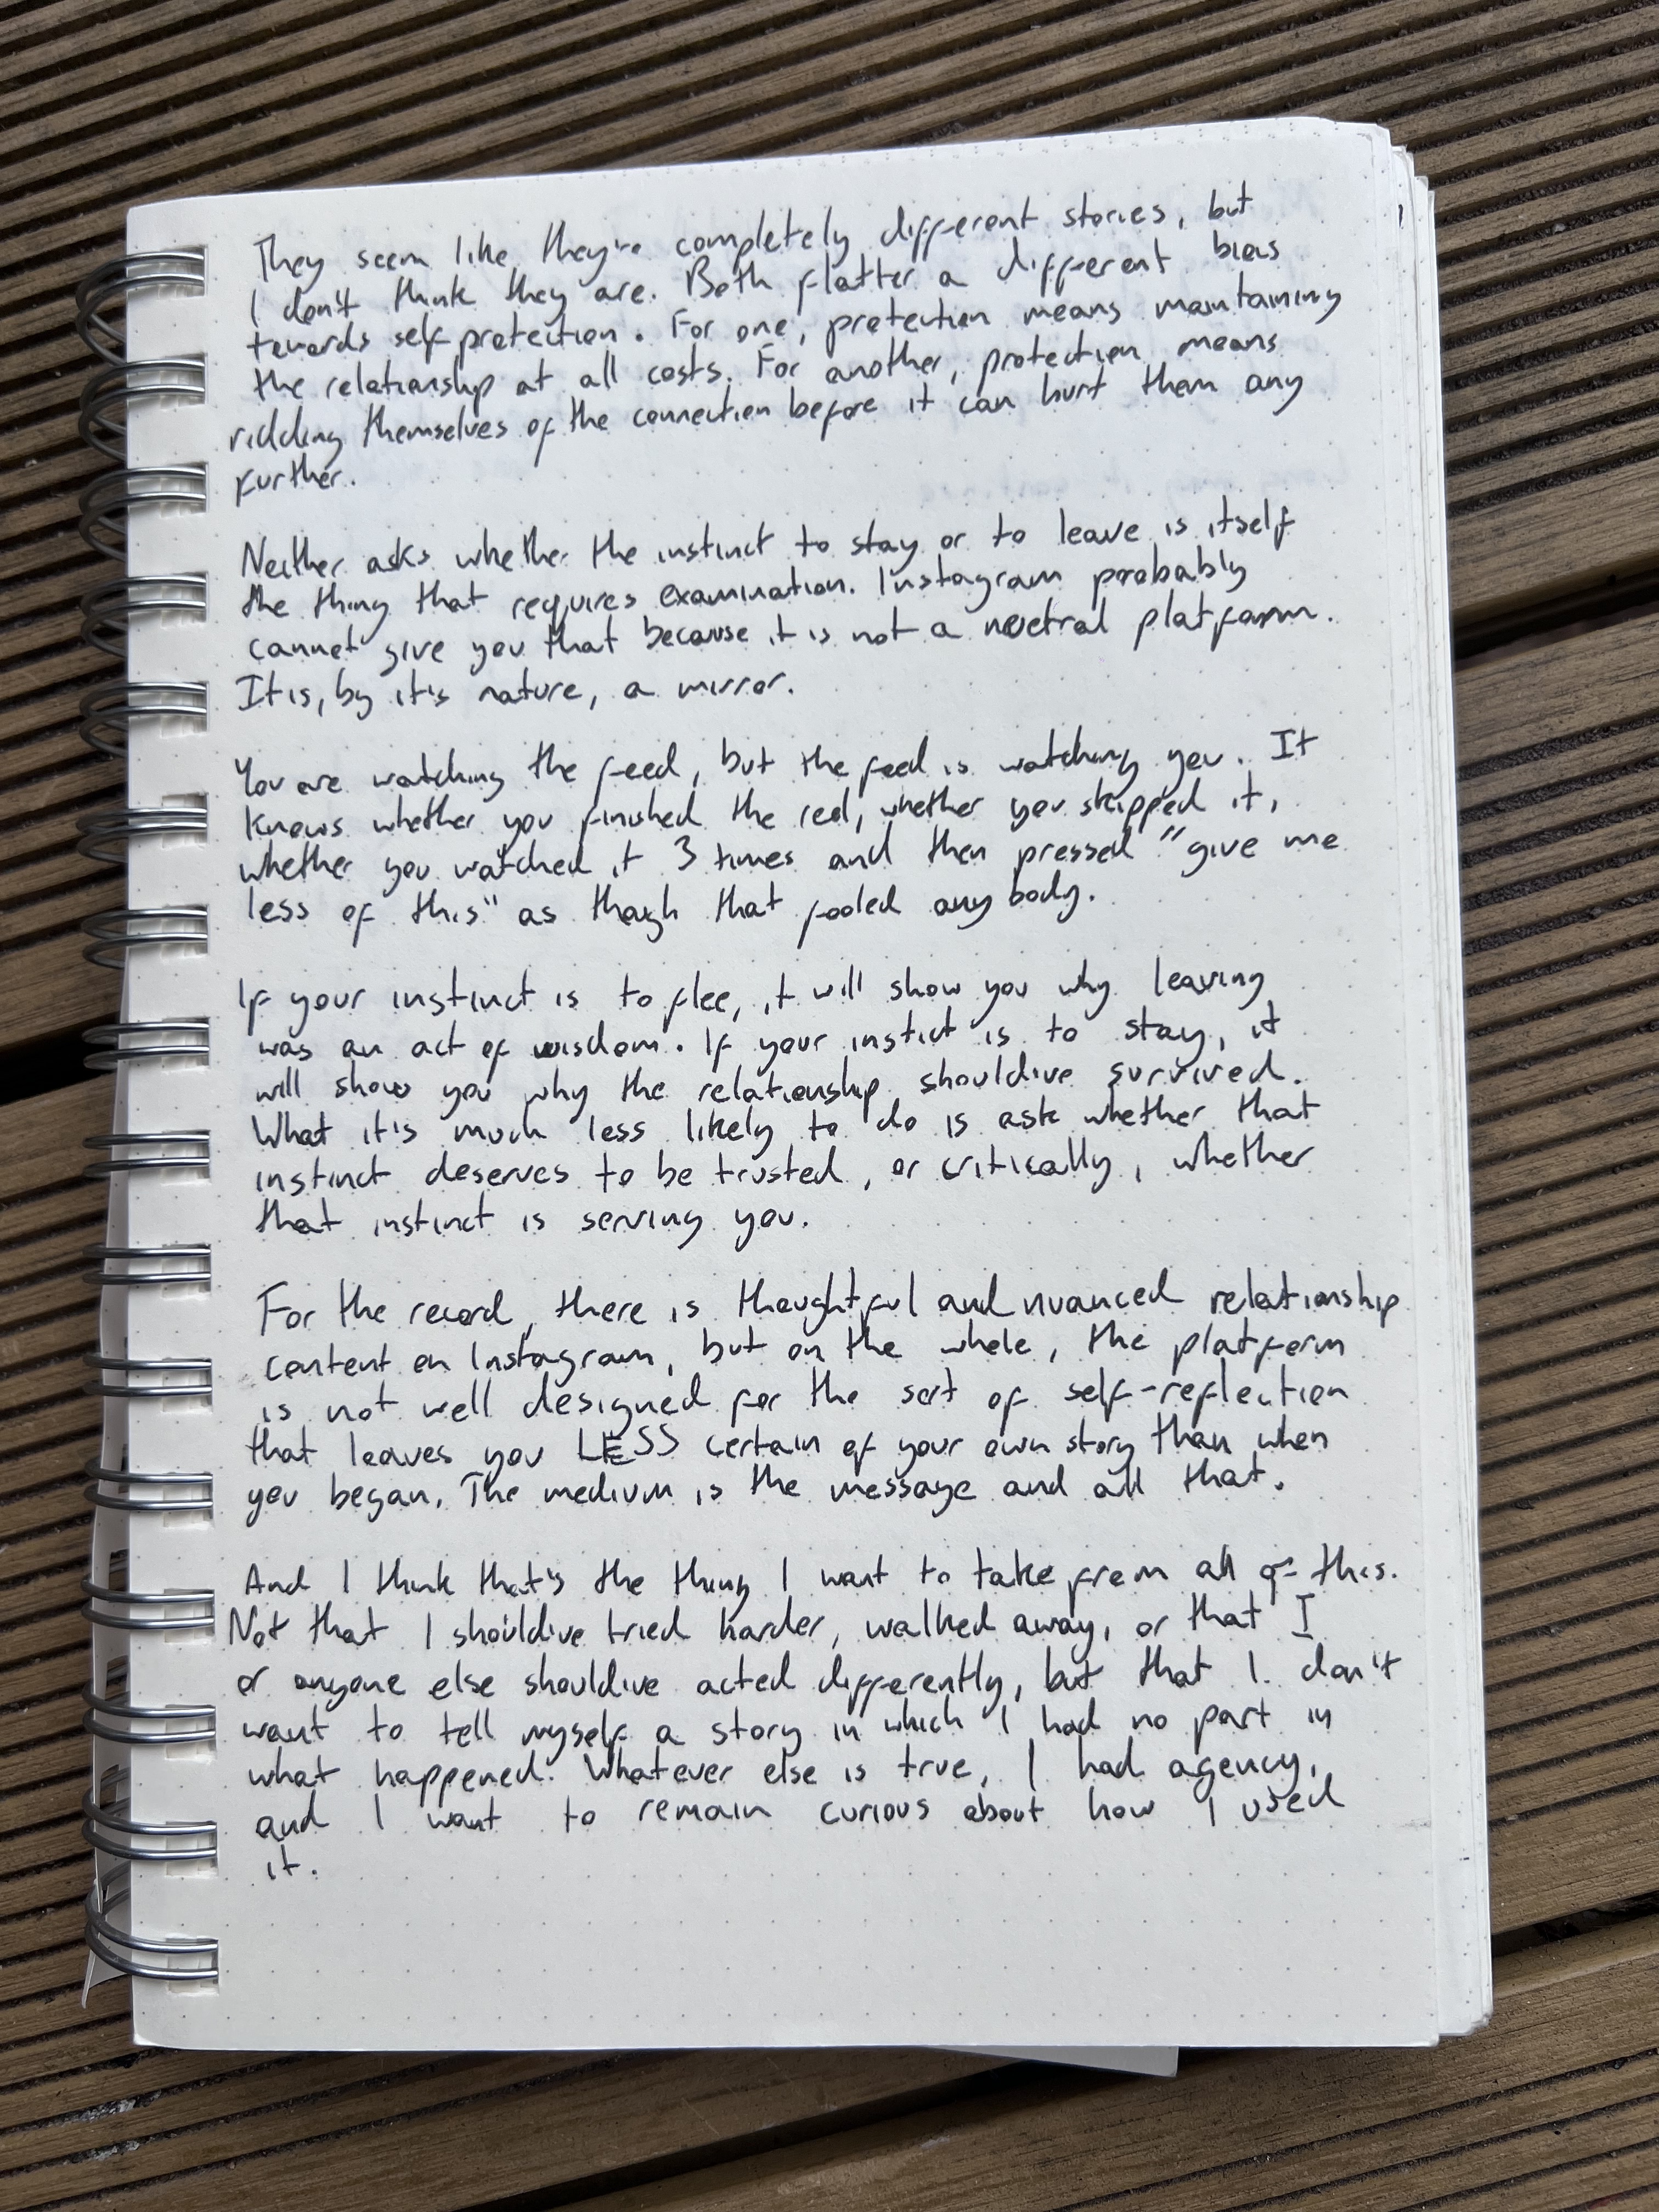 They seem like they're completely different stories, but
I don't think they are. Both flatter a different bias
towards self protection. For one, protection means maintaining
the relationship at all costs. For another, protection means
ridding themselves of the connection before it can hurt them any
further.
Neither asks whether the instinct to stay or to leave is itself
the thing that requires examination. Instagram probably
cannot give you that because it is not a neutral platform.
It is, by it's nature, a mirror.
You are watching the feed, but the feed is watching you. It
knows whether you finished the reel, whether you skipped it,
whether you watched it 3 times and then pressed "give me
less of this" as though that fooled anybody.
If your instinct is to flee, it will show you why leaving
was an act of wisdom. If your instict is to stay, it
will show you why the relationship should've survived.
What it's much less likely to do is ask whether that
instinct deserves to be trusted, or critically, whether
that instinct is serving you.
For the record, there is thoughtful and nuanced relationship
content on Instagram, but on the whole, the platform
is not well designed for the sort of self-reflection
that leaves you LESS certain of your own story than when
you began. The medium is the message and all that.
And I think that's the thing I want to take from all of this.
Not that I should've tried harder, walked away, or that I
or anyone else should've acted differently, but that I don't
want to tell myself a story in which I had no part in
what happened. Whatever else is true, I had agency,
and I want to remain curious about how I used
it.